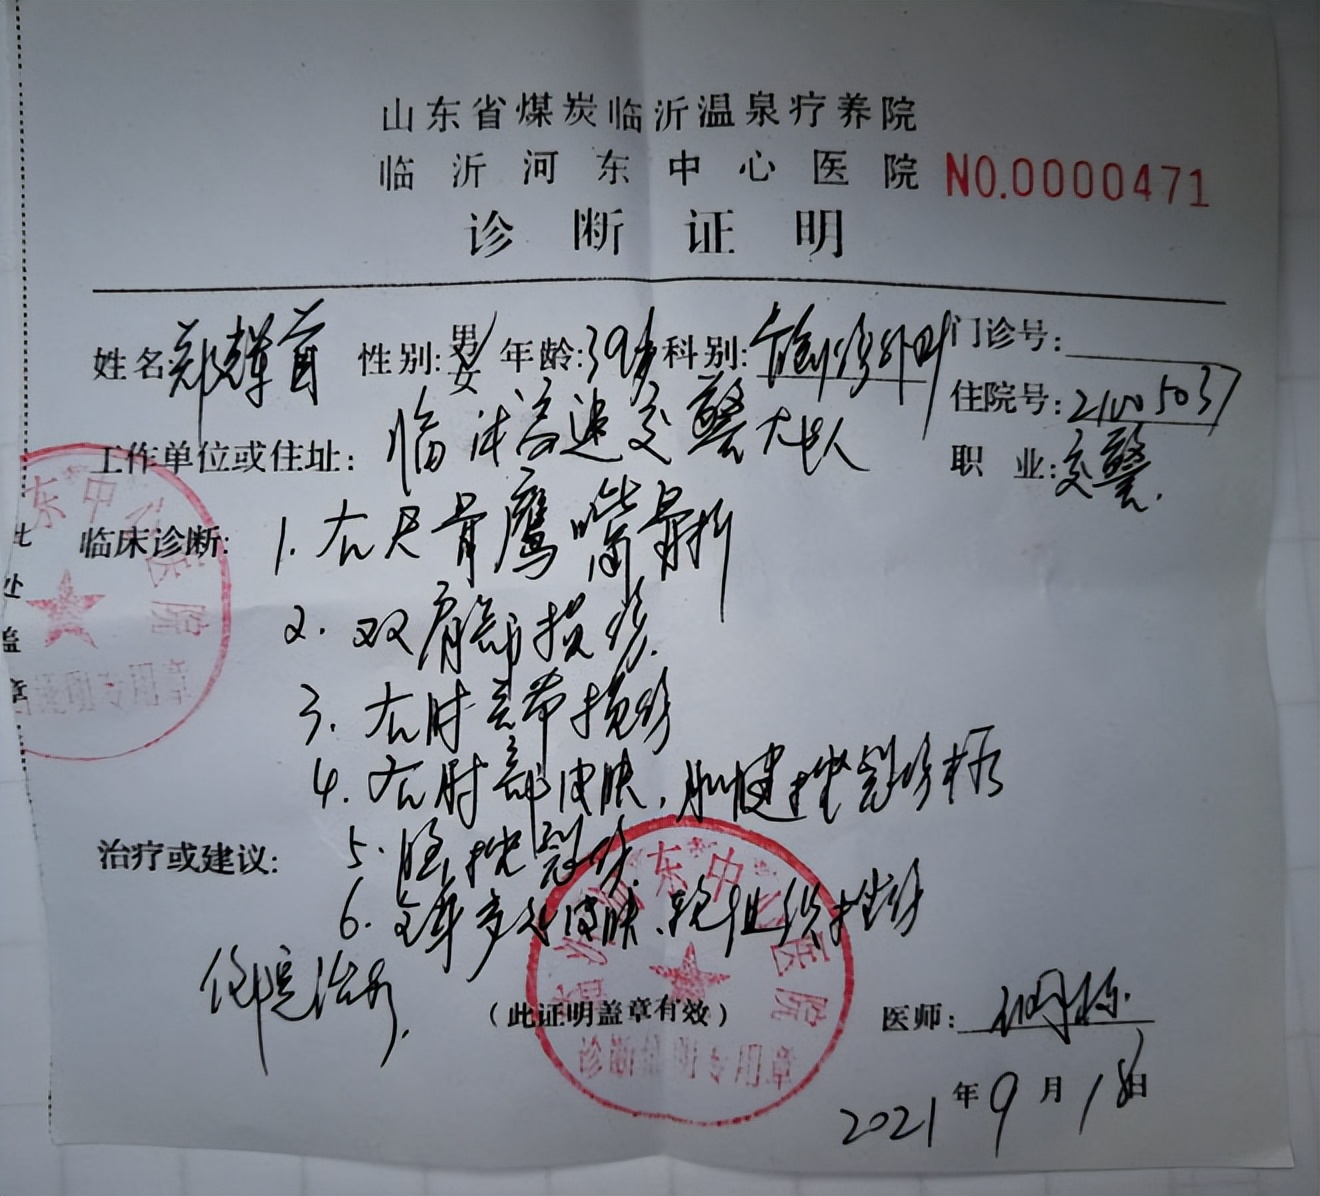 山东省煤炭临沂温泉疗养院
临沂河东中心医院 NO.0000471
诊断证明
姓名 郑 性别:男/女 年龄:39岁 科别:创伤外四 门诊号:
住院号:21005037
工作单位或住址: 临沭高速交警大队 职业:交警.
临床诊断: 1. 右尺骨鹰嘴骨折
2. 双肩部损伤.
3. 右肘韧带损伤
4. 右肘部皮肤、肌腱挫裂伤
治疗或建议: 5. 挫裂伤.
6. 全身多处皮肤、软组织挫伤
住院治疗.
(此证明盖章有效) 医师:
2021年9月18日
此处盖章
东中心医院
东中心医院